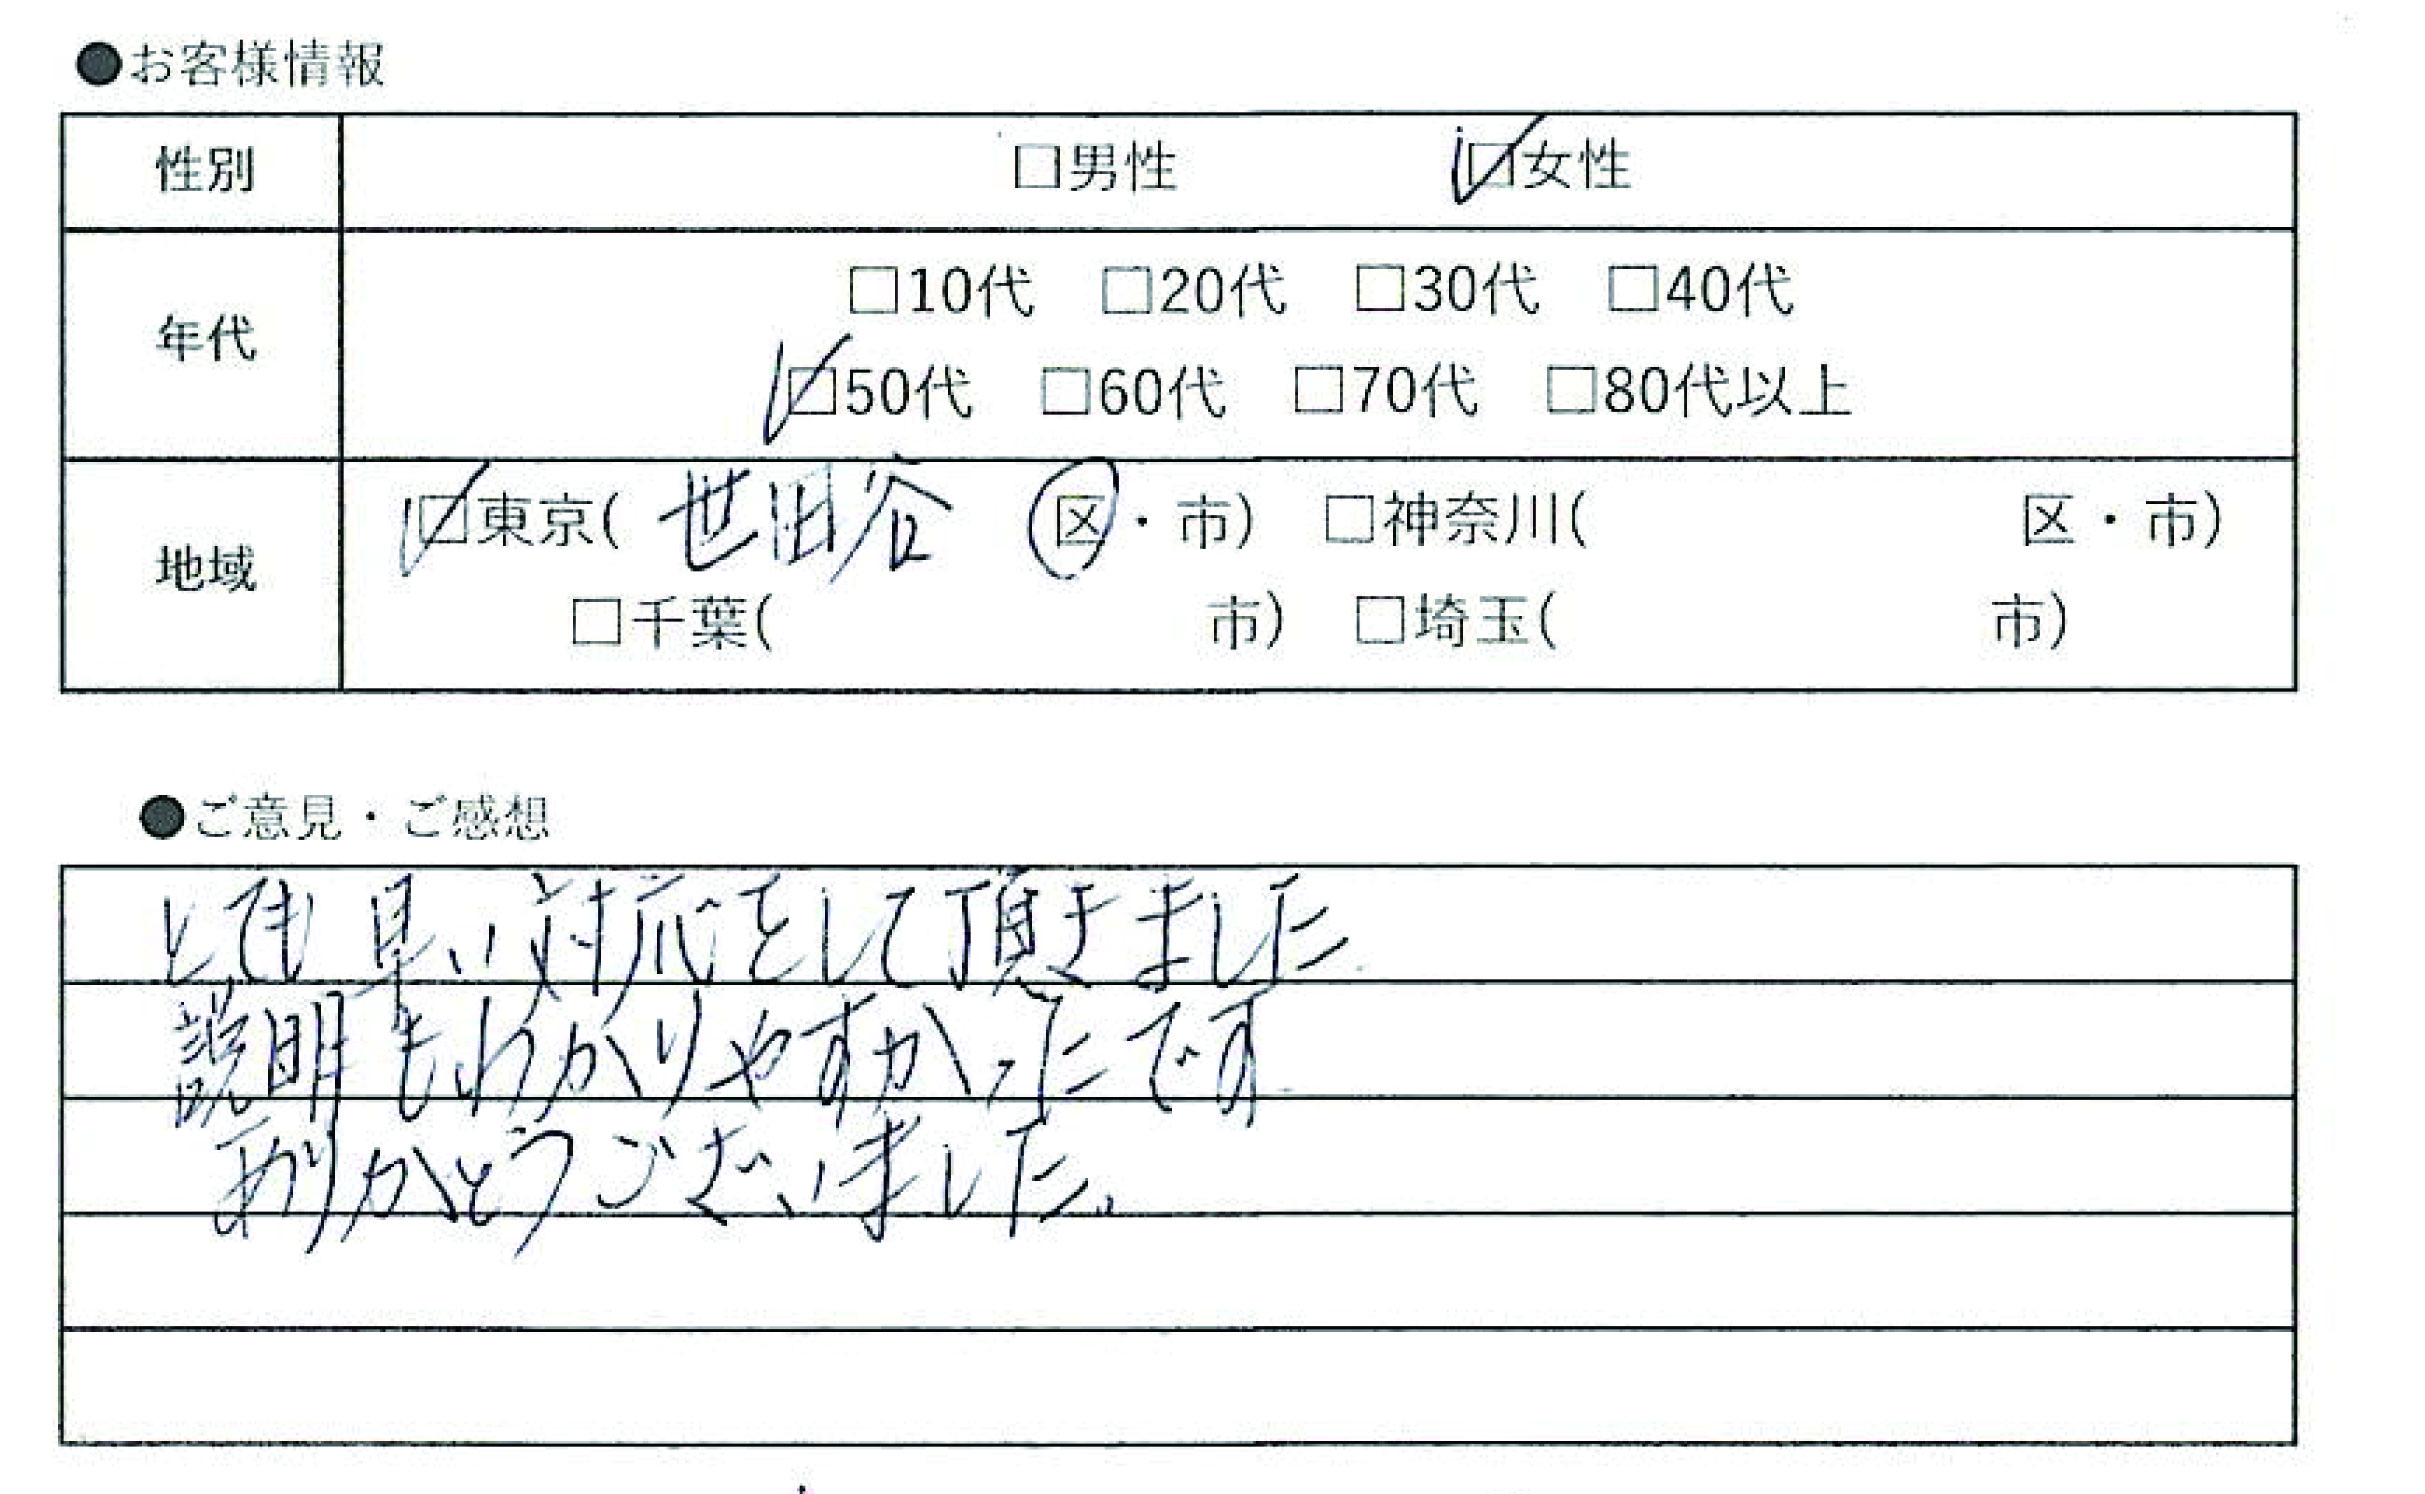 ●お客様情報
性別 □男性 ☑女性
年代 □10代 □20代 □30代 □40代
☑50代 □60代 □70代 □80代以上
地域 ☑東京( 世田谷 区・市) □神奈川( 区・市)
□千葉( 市) □埼玉( 市)
●ご意見・ご感想
とても早い対応をして頂きました
説明もわかりやすかったです
ありがとうございました。